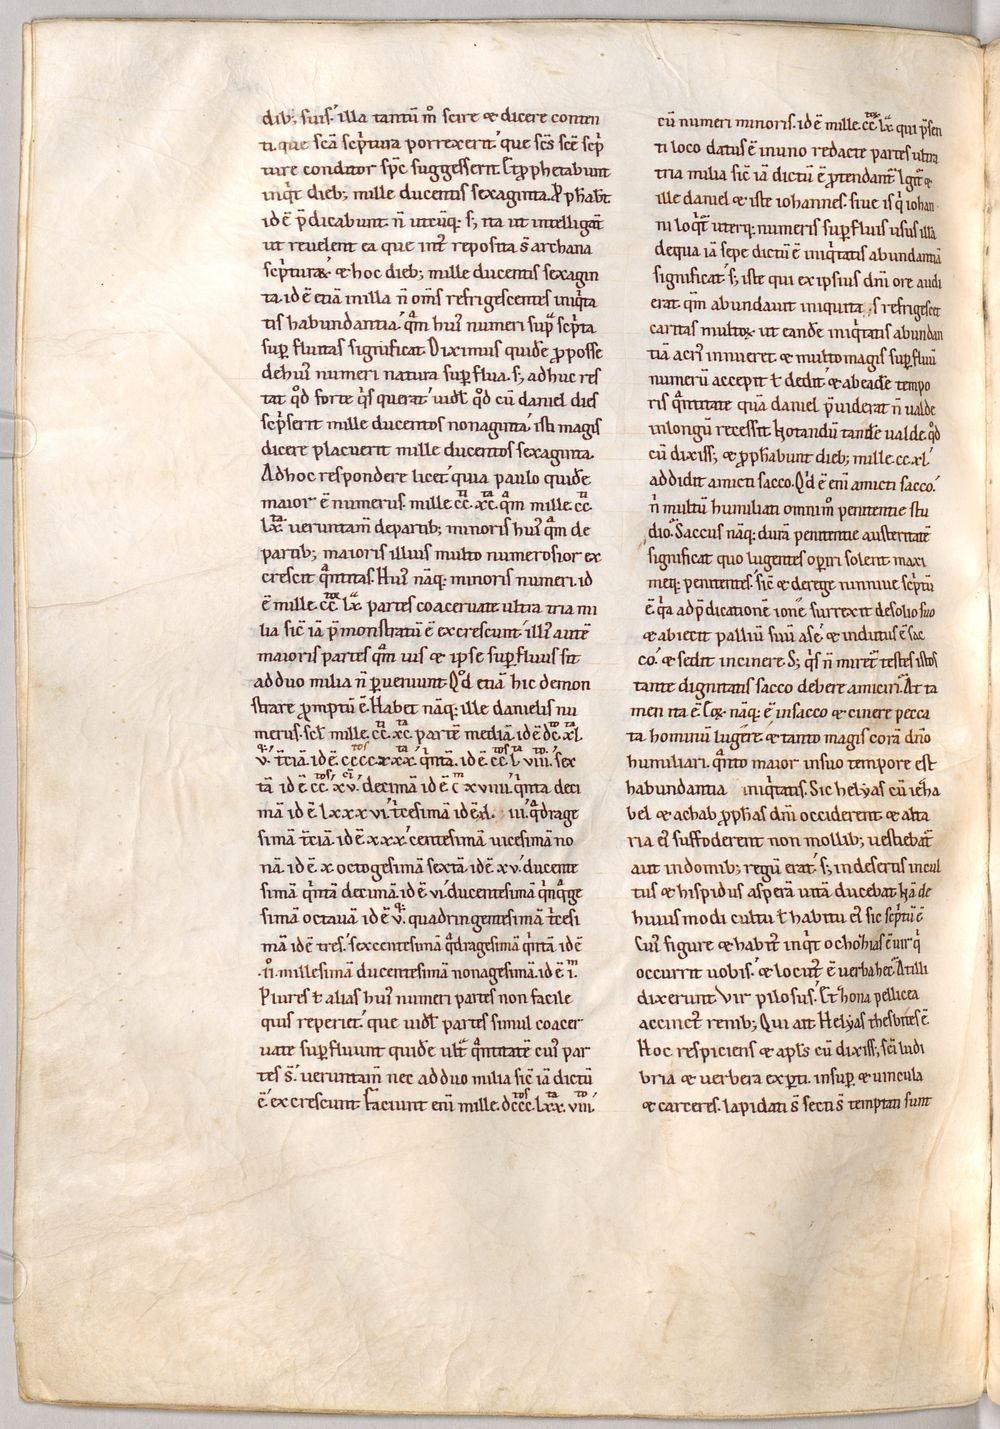 dib; suis. illa tantū m̊ scire & dicere conten
ti. que scā scp̄tura porrexerit. que scī scē scp̄
ture conditor sp̄c suggesserit. Et ꝓphetabunt
inqͥt dieb; mille ducentis sexaginta. Ꝓph̄abt̄
id ē p̄dicabunt. n̄ utcūq; s; ita ut intelligāt
ut reuelent ea que int̄ reposita s̄ archana
scp̄turaꝝ. & hoc dieb; mille ducentis sexagin
ta. id ē etiā in illa n̄ om̄s refrigescentes iniqͥta
tis habundantia. qͣm huiꝰ numeri supͣ scp̄ta
suꝑfluitas significat. Diximus quidē ꝓ posse
de huiꝰ numeri natura suꝑflua. s; adhuc res
tat qͦd forte qͥs querat. uidł qͦd cū daniel dies
scp̄serit mille ducentos nonaginta. isti magis
dicere placuerit mille ducentos sexaginta.
Ad hoc respondere licet. quia paulo quidē
maior ē numerus. mille c̄c. xc. qͣm mille. cc.
lx. ueruntam̄ de partib; minoris huiꝰ qͣm de
partib; maioris illius multo numerosior ex
crescit qͣntitas. Huiꝰ nāq; minoris numeri. id
ē mille. cc. lx. partes coaceruate ultra tria mi
lia sic̄ iā p̄monstratū ē excrescunt. illiꝰ autē
maioris partes qͣm uis & ipse suꝑfluus sit
ad duo milia n̄ ꝑueniunt. Qͦd etiā hic demon
strare ꝓmptū ē. Habet nāq; ille danielis nu
merus. scł mille. cc. xc. partē mediā. id ē dc. xl.
v. t̄ciā. id ē. cccc. xxx. qͥntā. id ē. cc. l viii. sex
tā id ē cc. xv. decimā id ē c xxviiii. qͥnta deci
mā id ē lxxxvi. t̄cesimā id ē xl iii. qͣdrage
simā t̄ciā. id ē. xxx. centesimā uicesimā no
nā. id ē. x. octogesimā sextā. id ē. xv. ducente
simā qͥntā decimā. id ē. vi. ducentesimā qͥnqͣge
simā octauā. id ē v. quadringentesimā t̄cesi
mā id ē tres. sexcentesimā qͣdragesimā qͥntā. id ē
.ii. millesimā ducentesimā nonagesimā. id ē i.
Plures ł alias huiꝰ numeri partes non facile
quis reperiet. que uidł partes simul coacer
uate suꝑfluunt quidē ulͭ qͣntitatē cuiꝰ par
tes s̄. ueruntam̄ nec ad duo milia sic̄ iā dictū
ē. excrescunt. Faciunt eni̅ mille. dcccc. lxx. viii.
cū numeri minoris. id ē mille. cc. lx. qui p̄sen
ti loco datus ē in uno redacte partes ultra
tria milia sic̄ iā dictū ē ꝓtendant̄. Igit̄ &
ille daniel & iste iohannes. siue is qͥ iohan
ni loqͥt̄ uterq; numeris suꝑfluis usus illā
de qua iā sepe dictū ē iniqͥtatis abundantiā
significat. s; iste qui ex ipsius dn̄i ore audi
erat. qm̄ abundauit iniquitas refrigescet
caritas multoꝝ. ut eandē iniqͥtatis abundan
tiā acriꝰ innueret & multo magis suꝑfluū
numerū accepit ł dedit. & ab eadē tempo
ris qͣntitate quā daniel p̄uiderat n̄ ualde
in longū recessit. Notandū tandē ualde. qͦd
cū dixiss; & ꝓph̄abunt dieb; mille. cc. xl.
addidit amicti sacco. Qͥd ē eni̅ amicti sacco.
n̄ multū humiliati omnim̊ penitentie stu
dio. Saccus nāq; durā penitentie austeritatē
significat. quo lugentes oꝑiri solent maxi
meq; penitentes. sic̄ & de rege niniue scp̄tū
ē. qͥa ad p̄dicationē ionē surrexit de solio suo
& abiecit palliū suū a se. & indutus ē sac
co. & sedit in cinere. S; qͥs n̄ miret̄ testes istos
tante dignitatis sacco debere amiciri. At ta
men ita ē. Eoꝝ nāq; ē in sacco & cinere pecca
ta hominū lugere. & tanto magis corā dn̄o
humiliari. qͣnto maior in suo tempore est
habundantia iniqͥtatis. Sic helyas cū ieȝa
bel & achab ꝓph̄as dn̄i occiderent & alta
ria eiꝰ suffoderent non mollib; uestiebat̄
aut in domib; regū erat. s; in desertis incul
tus & hispidus asperā uitā ducebat. Nā de
huius modi cultu ł habitu eiꝰ sic scp̄tū ē
Cuiꝰ figure & habitꝰ inqͥt ochoȝias ē uir qͥ
occurrit uobis. & locutꝰ ē uerba hec. At illi
dixerunt. Vir pilosus. Et ȝona pellicea
accinctꝰ renib; Qui ait. Helyas thesbites ē.
Hoc respiciens & apl̄s cū dixiss; sc̄i ludi
bria & uerbera exꝑti. insuꝑ & uincula
& carceres. lapidati s̄ secti s̄ temptati sunt